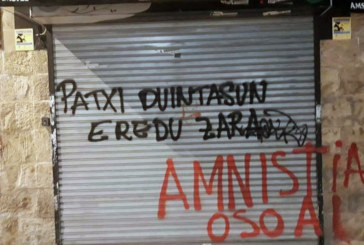 PATXI DUINTASUN
EREDU ZARA
AMNISTiA
OSOA